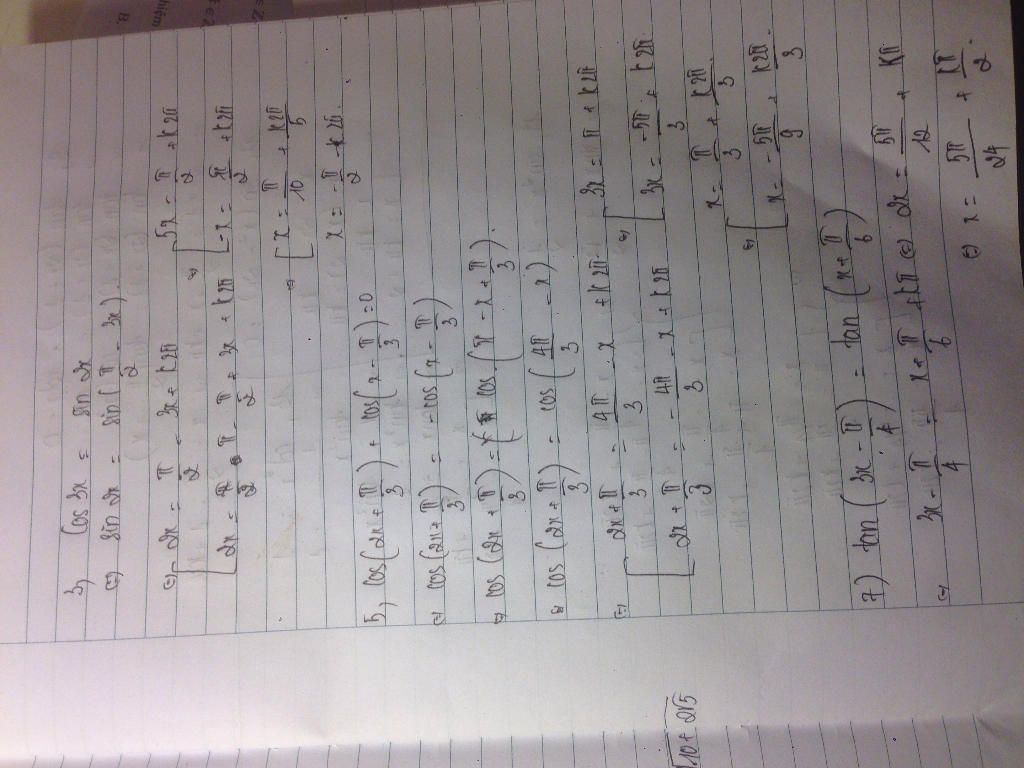 3, cos 3x = sin 2x
⇔ sin 2x = sin(π/2 - 3x).
⇔ [ 2x = π/2 - 3x + k2π
[ 2x = π - π/2 + 3x + k2π
⇔ [ 5x = π/2 + k2π
[ -x = π/2 + k2π
⇔ [ x = π/10 + k2π/5
x = -π/2 - k2π.
5, cos(2x + π/3) + cos(x - π/3) = 0
⇔ cos(2x + π/3) = - cos(x - π/3)
⇔ cos(2x + π/3) = cos(π - x + π/3).
⇔ cos(2x + π/3) = cos(4π/3 - x)
⇔ [ 2x + π/3 = 4π/3 - x + k2π.
[ 2x + π/3 = - 4π/3 - x + k2π
⇔ [ 3x = π + k2π
[ 3x = -5π/3 + k2π
⇔ [ x = π/3 + k2π/3
[ x = -5π/9 + k2π/3.
7) tan(3x - π/4) = tan(x + π/6)
⇔ 3x - π/4 = x + π/6 + kπ ⇔ 2x = 5π/12 + kπ
⇔ x = 5π/24 + kπ/2.
√10 + 2√5
B.